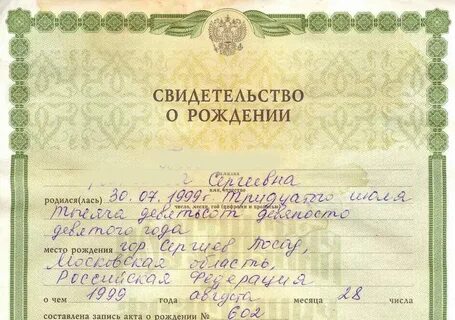 СВИДЕТЕЛЬСТВО
О РОЖДЕНИИ
фамилия
Сергеевна
имя, отчество
родился(лась) 30.07.1999г. Тридцатого июля
число, месяц, год (цифрами и прописью)
тысяча девятьсот девяносто
девятого года
место рождения гор Сергиев Посад,
Московская область,
Российская Федерация
о чем 1999 года августа месяца 28 числа
составлена запись акта о рождении № 602